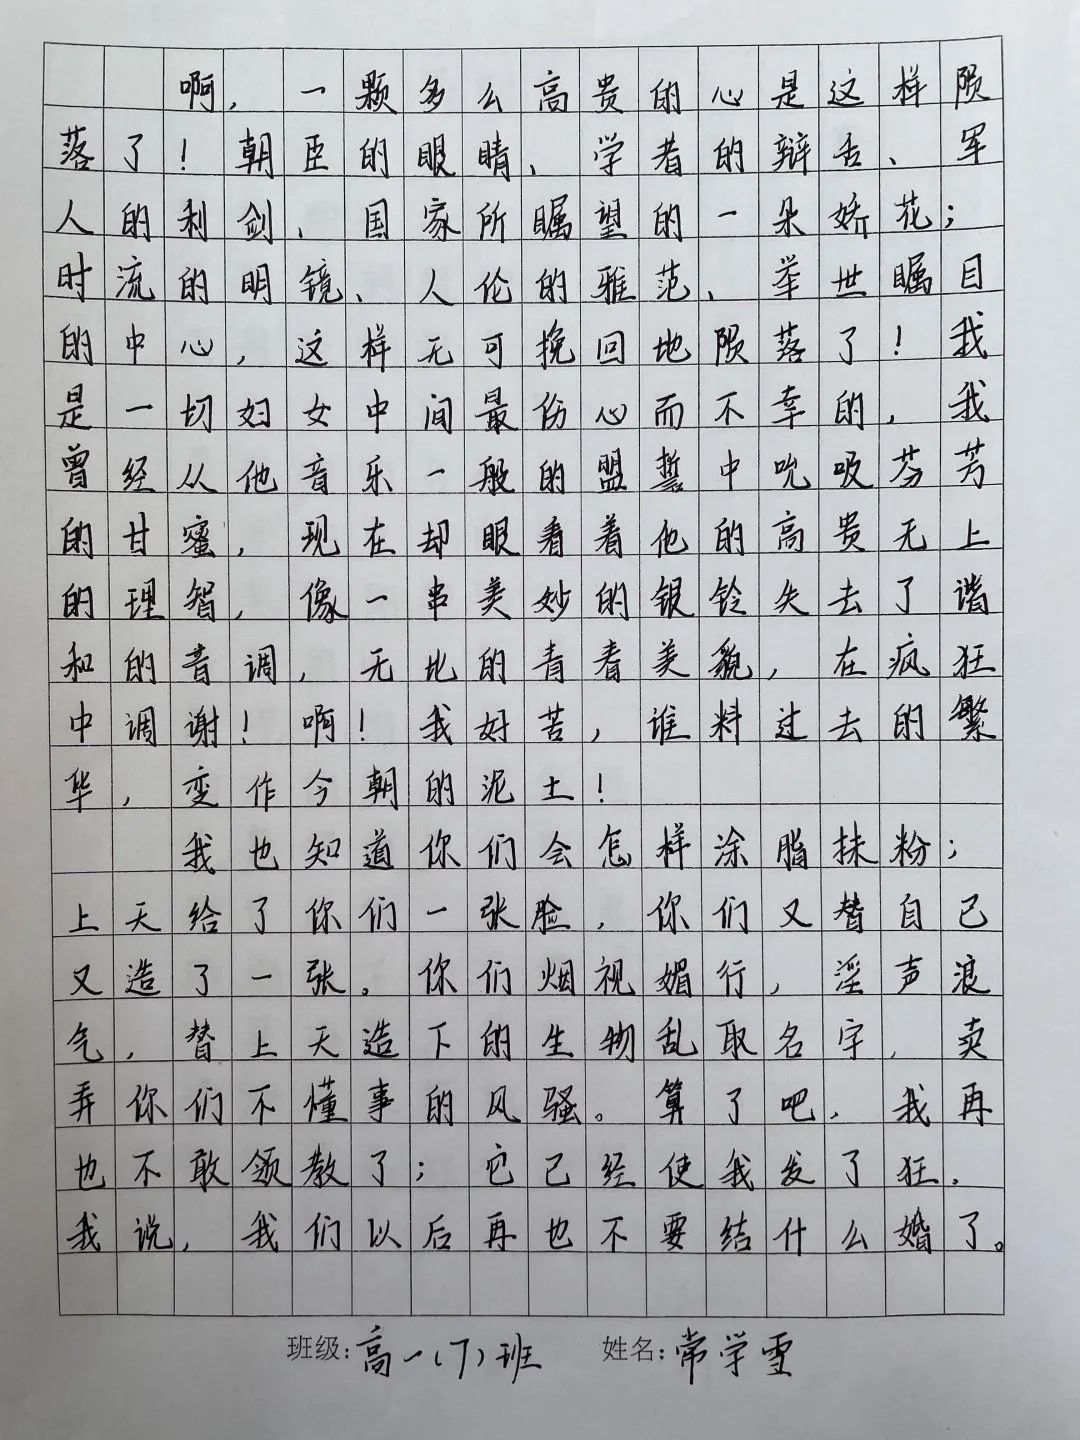 啊，一颗多么高贵的心是这样陨
落了！朝臣的眼睛、学者的辩舌、军
人的利剑、国家所瞩望的一朵娇花；
时流的明镜、人伦的雅范、举世瞩目
的中心，这样无可挽回地陨落了！我
是一切妇女中间最伤心而不幸的，我
曾经从他音乐一般的盟誓中吮吸芬芳
的甘蜜，现在却眼看着他的高贵无上
的理智，像一串美妙的银铃失去了谐
和的音调，无比的青春美貌，在疯狂
中调谢！啊！我好苦，谁料过去的繁
华，变作今朝的泥土！
我也知道你们会怎样涂脂抹粉；
上天给了你们一张脸，你们又替自己
又造了一张。你们烟视媚行，淫声浪
气，替上天造下的生物乱取名字，卖
弄你们不懂事的风骚。算了吧，我再
也不敢领教了；它已经使我发了狂，
我说，我们以后再也不要结什么婚了。
班级：高一（7）班 姓名：常学雪